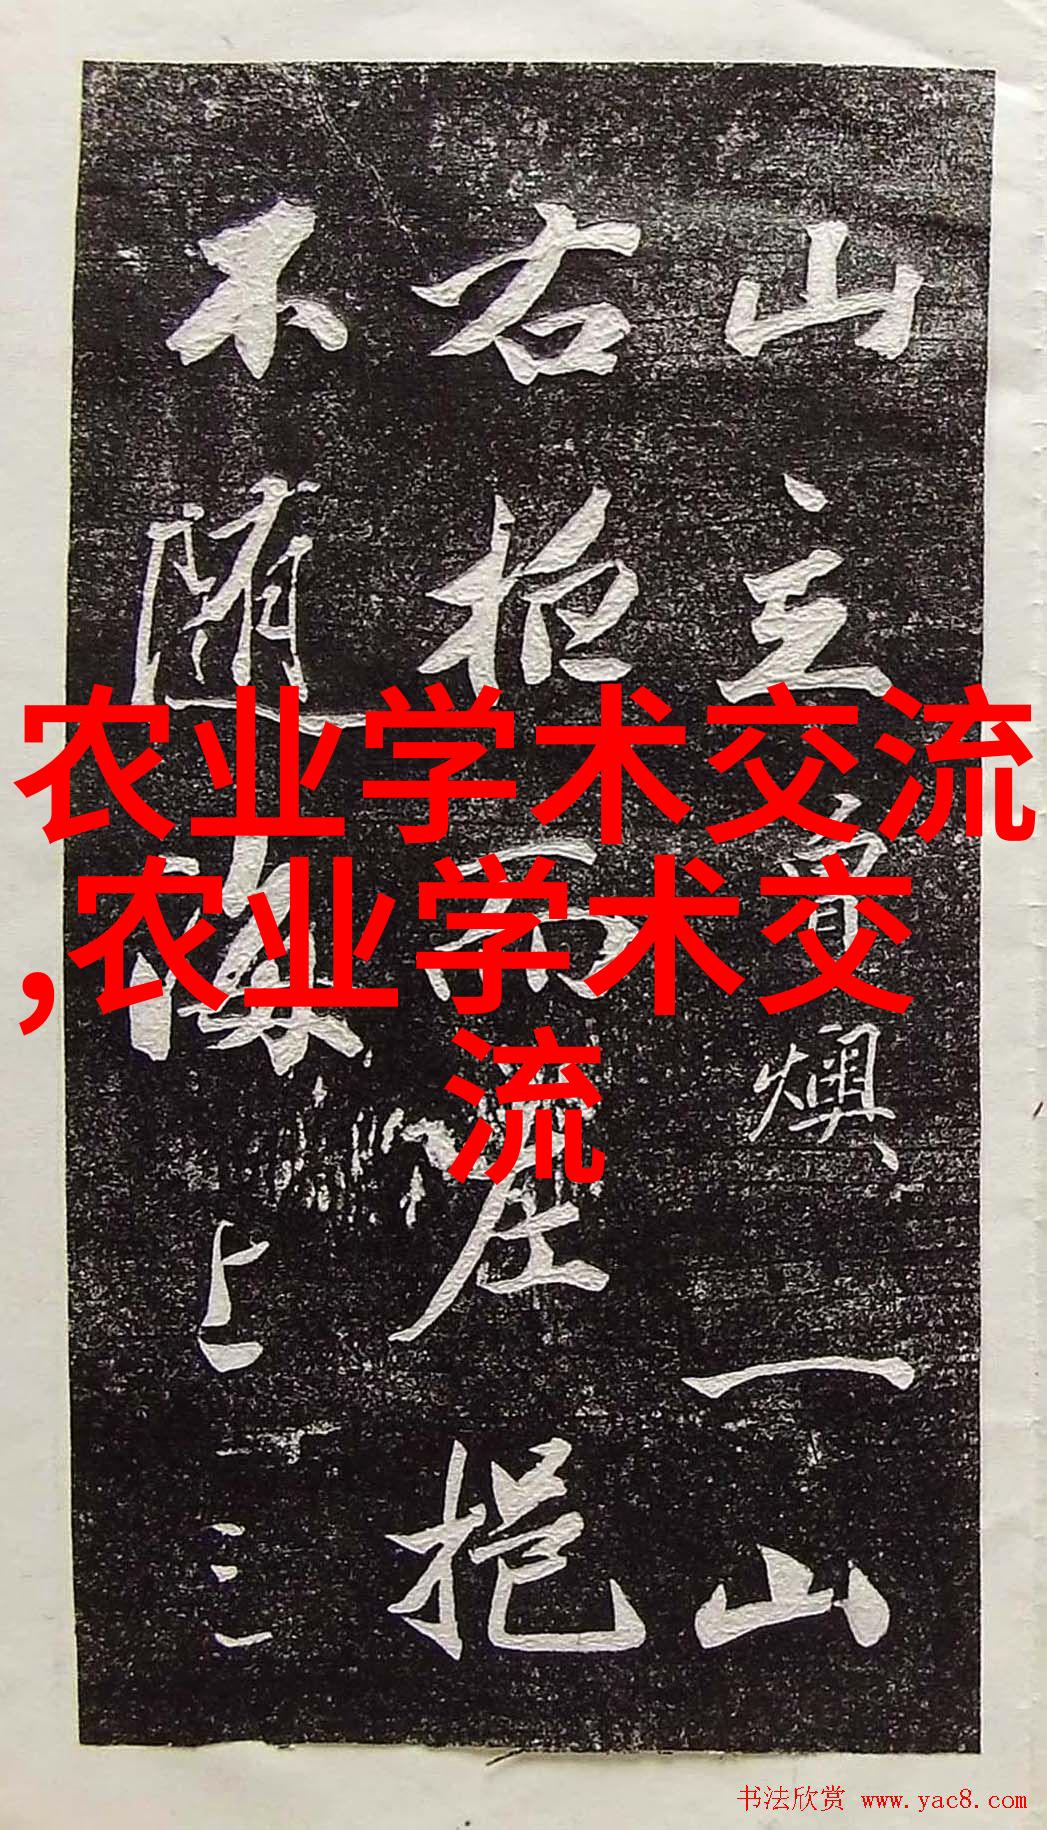 农业学术交流
,农业学术交
流
山主 一山
右 而左挹
不随海上三
书法欣赏 www.yac8.com